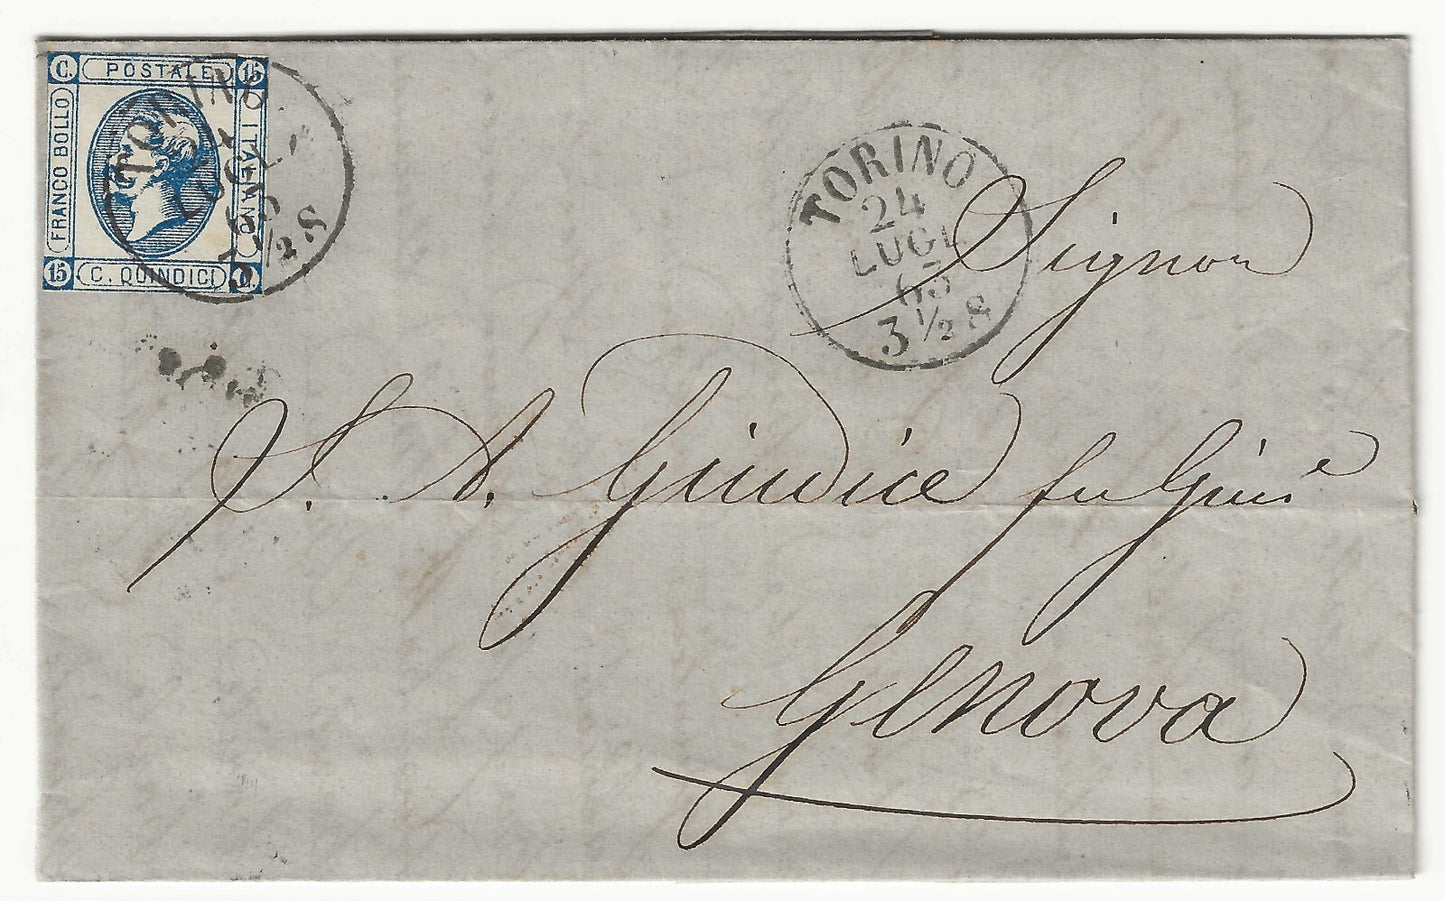 C. POSTALE 15
FRANCO BOLLO
ITALIANO
15 C. QUINDICI C.
TORINO
LUGL
63
3 1/2 S
TORINO
24
LUGL
63
3 1/2 S
Signor
A. Giudice fu Gius.e
Genova